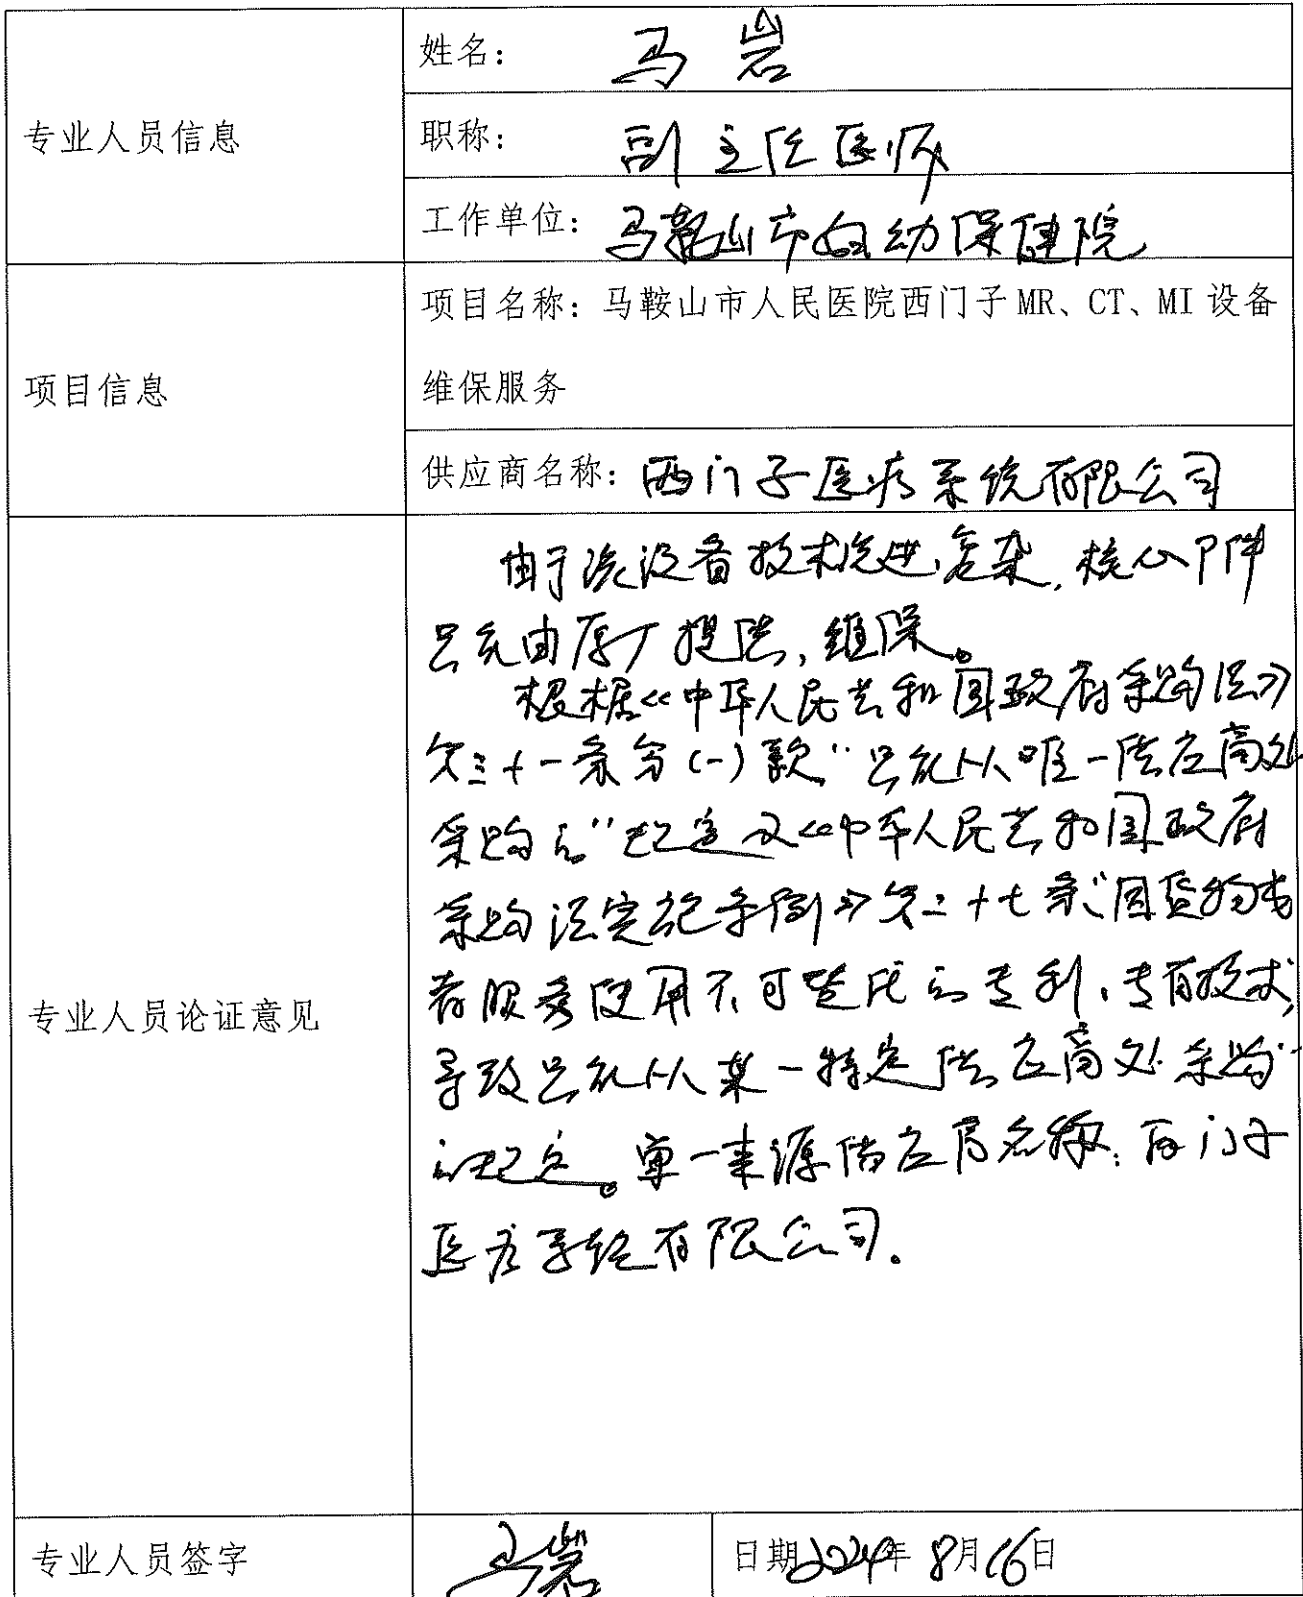 专业人员信息
姓名：马岩
职称：副主任医师
工作单位：马鞍山市妇幼保健院
项目信息
项目名称：马鞍山市人民医院西门子 MR、CT、MI 设备
维保服务
供应商名称：西门子医疗系统有限公司
专业人员论证意见
由于该设备技术先进、复杂，核心部件
只能由原厂提供，维保。
根据《中华人民共和国政府采购法》
第三十一条第（一）款“只能从唯一供应商处
采购的”规定及《中华人民共和国政府
采购法实施条例》第二十七条“因货物或
者服务使用不可替代的专利、专有技术，
导致只能从某一特定供应商处采购”
的规定。单一来源供应商名称：西门子
医疗系统有限公司.
专业人员签字
马岩
日期2024年 8月16日